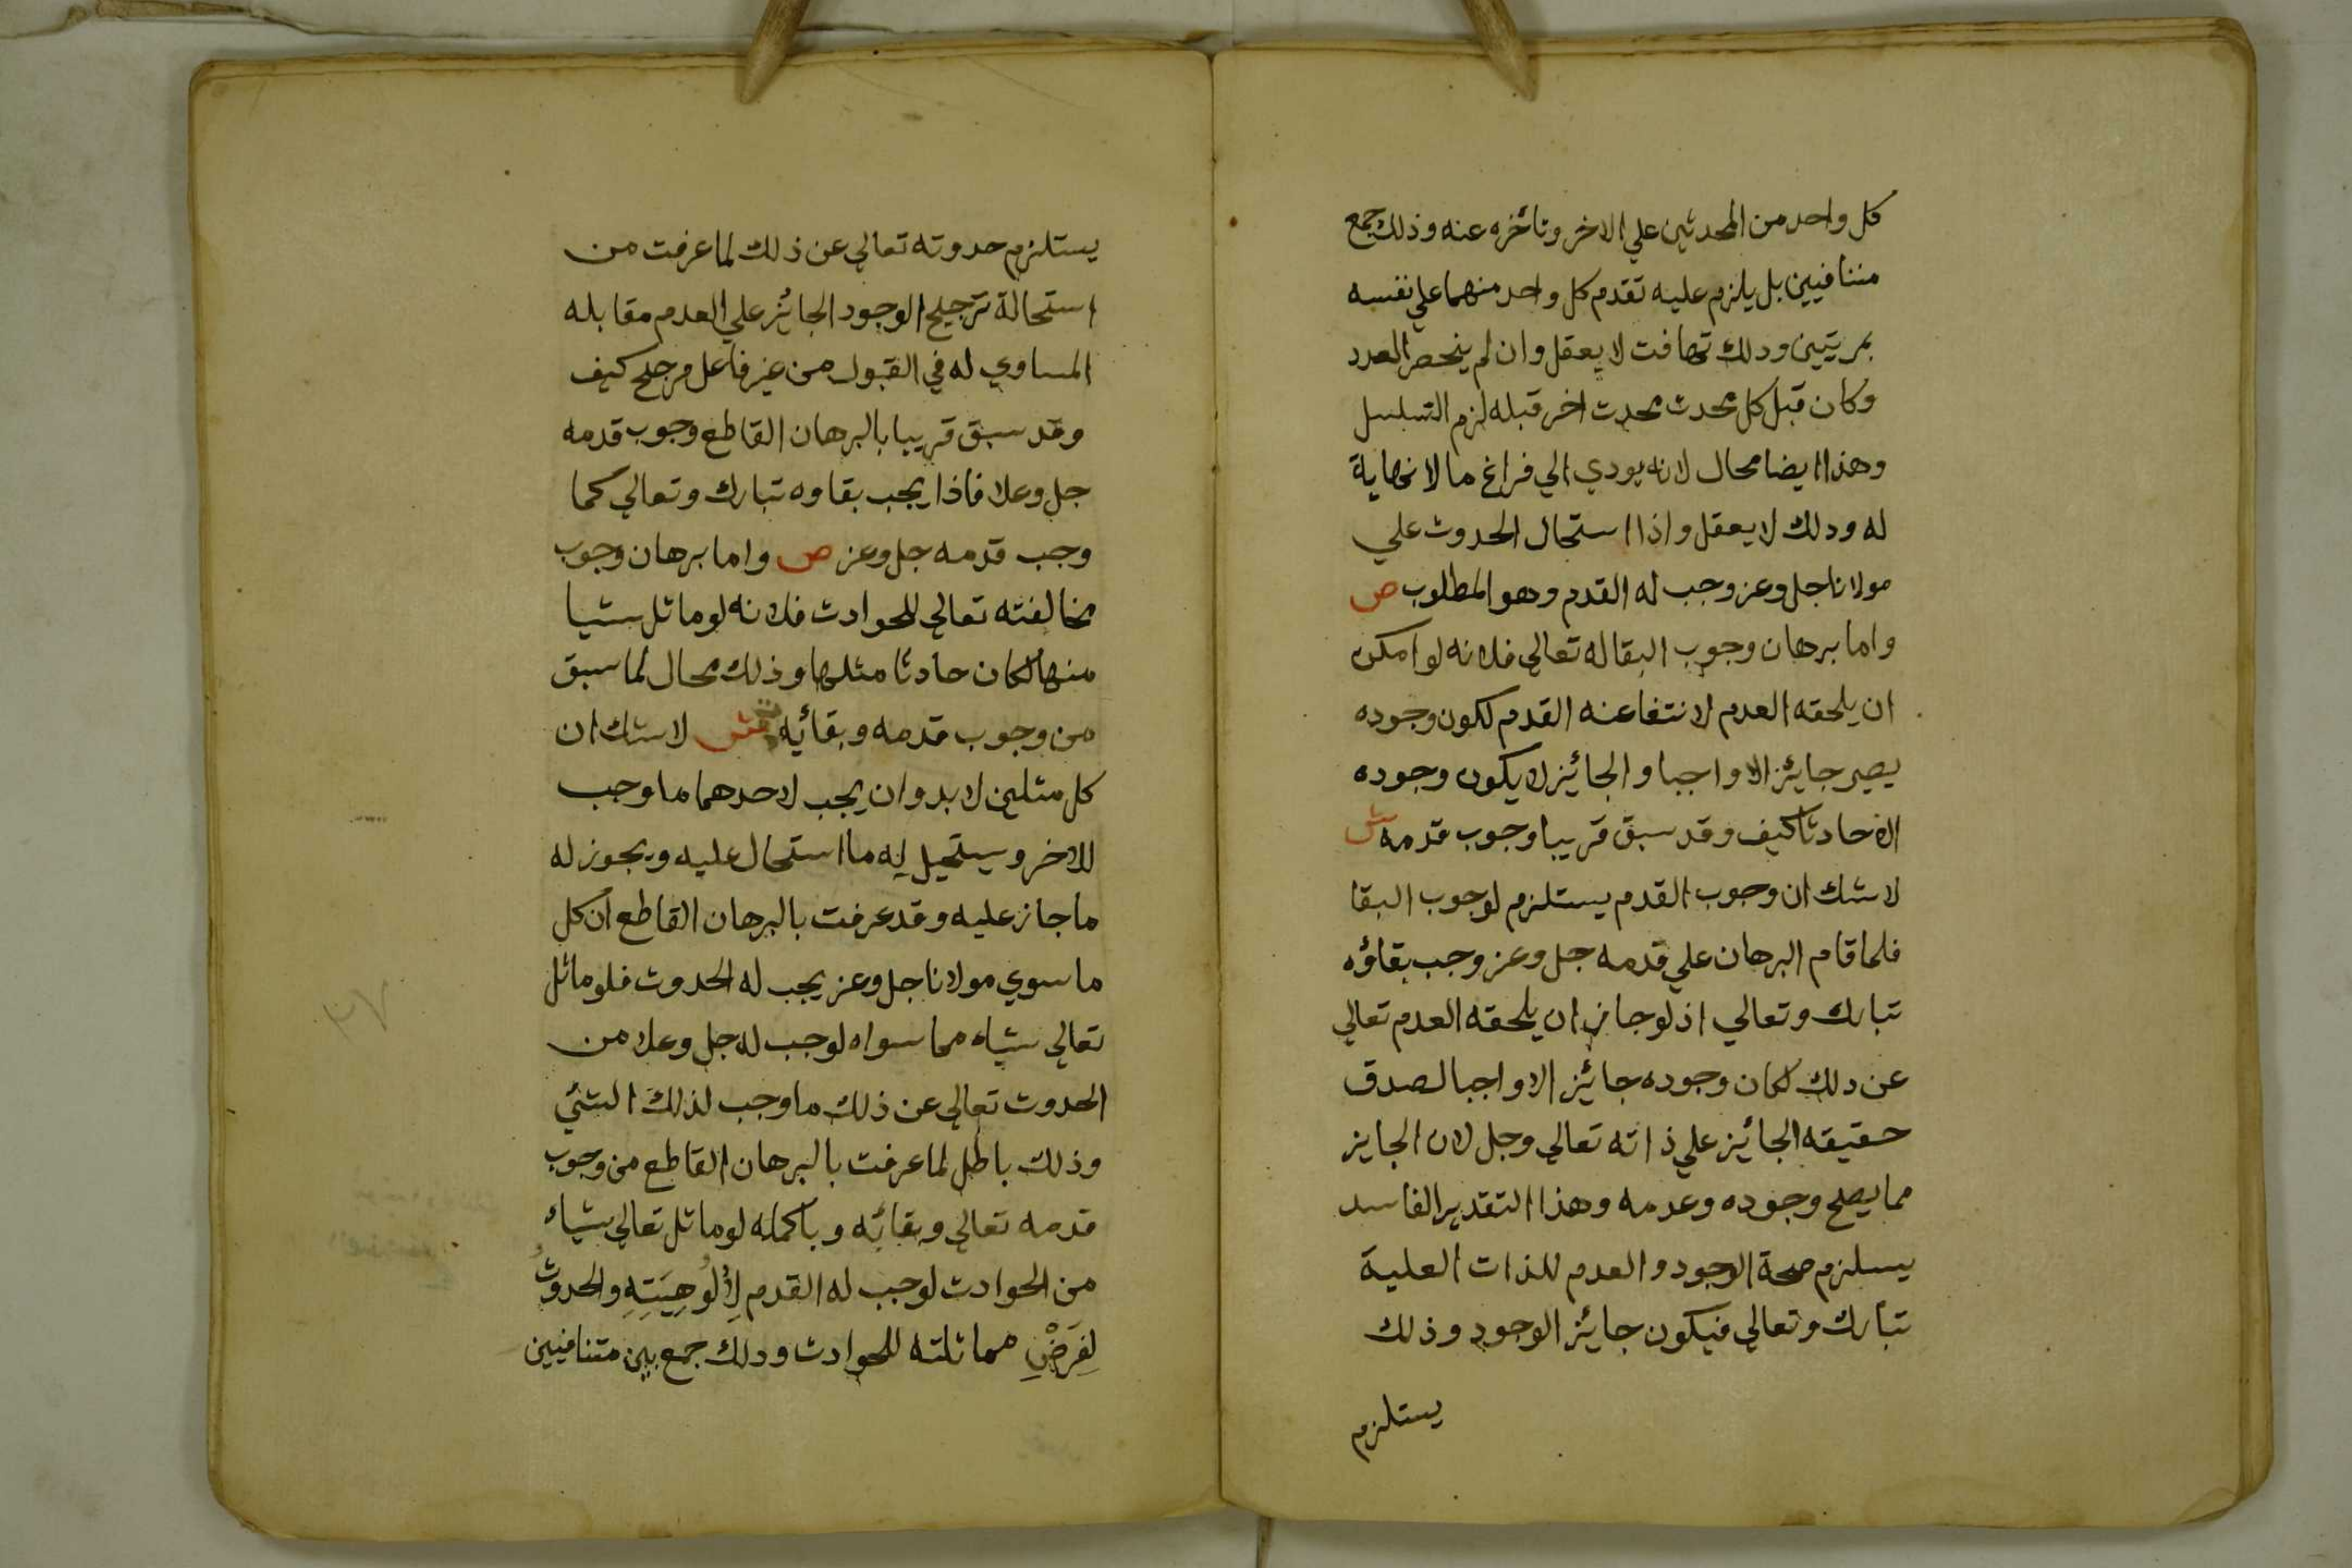 كل واحد من المحدثين علي الاخر وتاخره عنه وذلك جمع
متنافيين بل يلزم عليه تقدم كل واحد منهما علي نفسه
بمرتبتين ودلك تهافت لا يعقل وان لم ينحصر العدد
وكان قبل كل محدث محدث اخر قبله لزم التسلسل
وهذا ايضا محال لانه يودي الي فراغ ما لا نهاية
له ودلك لا يعقل واذا استحال الحدوث علي
مولانا جل وعز وجب له القدم وهو المطلوب ص
واما برهان وجوب البقا له تعالي فلانه لو امكن
ان يلحقه العدم لانتفا عنه القدم لكون وجوده
يصير جائز الا واجبا والجائز لا يكون وجوده
الا حادثا كيف وقد سبق قريبا وجوب قدمه ش
لا شك ان وجوب القدم يستلزم لوجوب البقا
فلما قام البرهان علي قدمه جل وعز وجب بقاؤه
تبارك وتعالي اذ لو جاز ان يلحقه العدم تعالي
عن دلك لكان وجوده جائز الا واجبا لصدق
حقيقه الجائز علي ذاته تعالي وجل لان الجايز
مما يصح وجوده وعدمه وهذا التقدير الفاسد
يسلزم صحة الوجود والعدم للذات العلية
تبارك وتعالي فيكون جائز الوجود وذلك
يستلزم
يستلزم حدوته تعالي عن ذلك لما عرفت من
استحالة ترجيح الوجود الجائز علي العدم مقابله
المساوي له في القبول من غير فاعل مرجح كيف
وقد سبق قريبا بالبرهان القاطع وجوب قدمه
جل وعلا فاذا يجب بقاوه تبارك وتعالي كما
وجب قدمه جل وعز ص واما برهان وجوب
مخالفته تعالي للحوادث فلانه لو ماثل شيا
منها لكان حادثا مثلها وذلك محال لما سبق
من وجوب قدمه وبقائه ش لا شك ان
كل مثلين لا بد وان يجب لاحدهما ما وجب
للاخر ويستحيل له ما استحال عليه ويجوز له
ما جاز عليه وقد عرفت بالبرهان القاطع ان كل
ما سوي مولانا جل وعز يجب له الحدوث فلو ماثل
تعالي شياء مما سواه لوجب له جل وعلا من
الحدوث تعالي عن ذلك ما وجب لذلك الشئي
وذلك باطل لما عرفت بالبرهان القاطع من وجوب
قدمه تعالي وبقائه وباكمله لو ماثل تعالي شياء
من الحوادث لوجب له القدم لِأُلُوهِيَتِهِ والحدوثُ
لِفَرَضْ مماثلته للحوادث ودلك جمع بين متنافيين